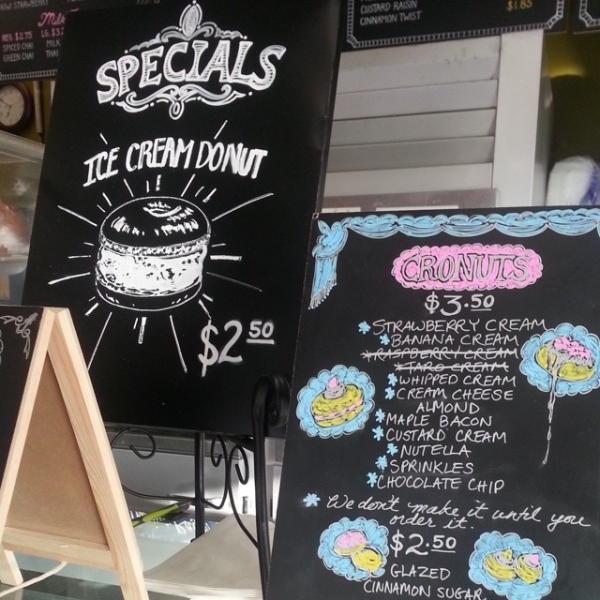 STRAWBERRY
REG $2.75 LG $3.
SPICED CHAI
GREEN CHAI
CUSTARD RAISIN
CINNAMON TWIST
$1.85
SPECIALS
ICE CREAM DONUT
$2 50
CRONUTS
$3.50
* STRAWBERRY CREAM
* BANANA CREAM
* RASPBERRY CREAM
* TARO CREAM
* WHIPPED CREAM
* CREAM CHEESE
ALMOND
* MAPLE BACON
* CUSTARD CREAM
* NUTELLA
* SPRINKLES
* CHOCOLATE CHIP
* We don't make it until you
order it.
$2.50
GLAZED
CINNAMON SUGAR